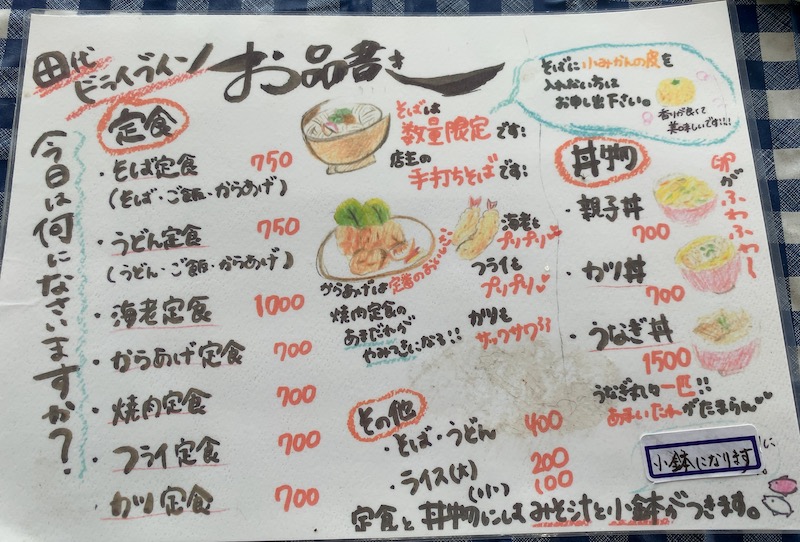 田代
ドライブイン
お品書き
今日は何になさいますか?
定食
・そば定食 750
(そば・ご飯・からあげ)
・うどん定食 750
(うどん・ご飯・からあげ)
・海老定食 1000
・からあげ定食 700
・焼肉定食 700
・フライ定食 700
・カツ定食 700
そばは
数量限定です!
店主の
手打ちそばです!
からあげは定番のおいしさ
焼肉定食の
あまだれが
やみつきになる!!
海老も
プリプリ
フライも
プリプリ
カツも
サックサク
そばに小みかんの皮を
入れたい方は
お申し出下さい。
香りが良くて
美味しいです!!!
丼物
卵がふわふわ〜
・親子丼
700
・カツ丼
700
・うなぎ丼
1500
うなぎ丸々一匹!!
あまいたれがたまらん
その他
・そば・うどん 400
・ライス(大) 200
(小) 100
小鉢になります
定食と丼物にはみそ汁と小鉢がつきます。